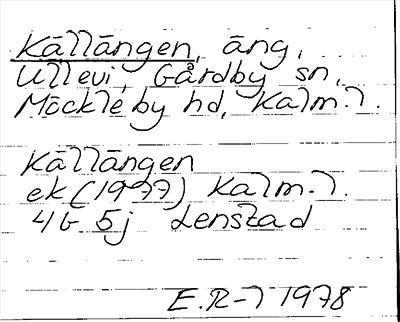 Källängen, äng,
Ullevi, Gårdby sn,
Möckleby hd, Kalm. l.
Källängen
ek (1977) Kalm. l.
4G 5j Lenstad
E.R-l 1978